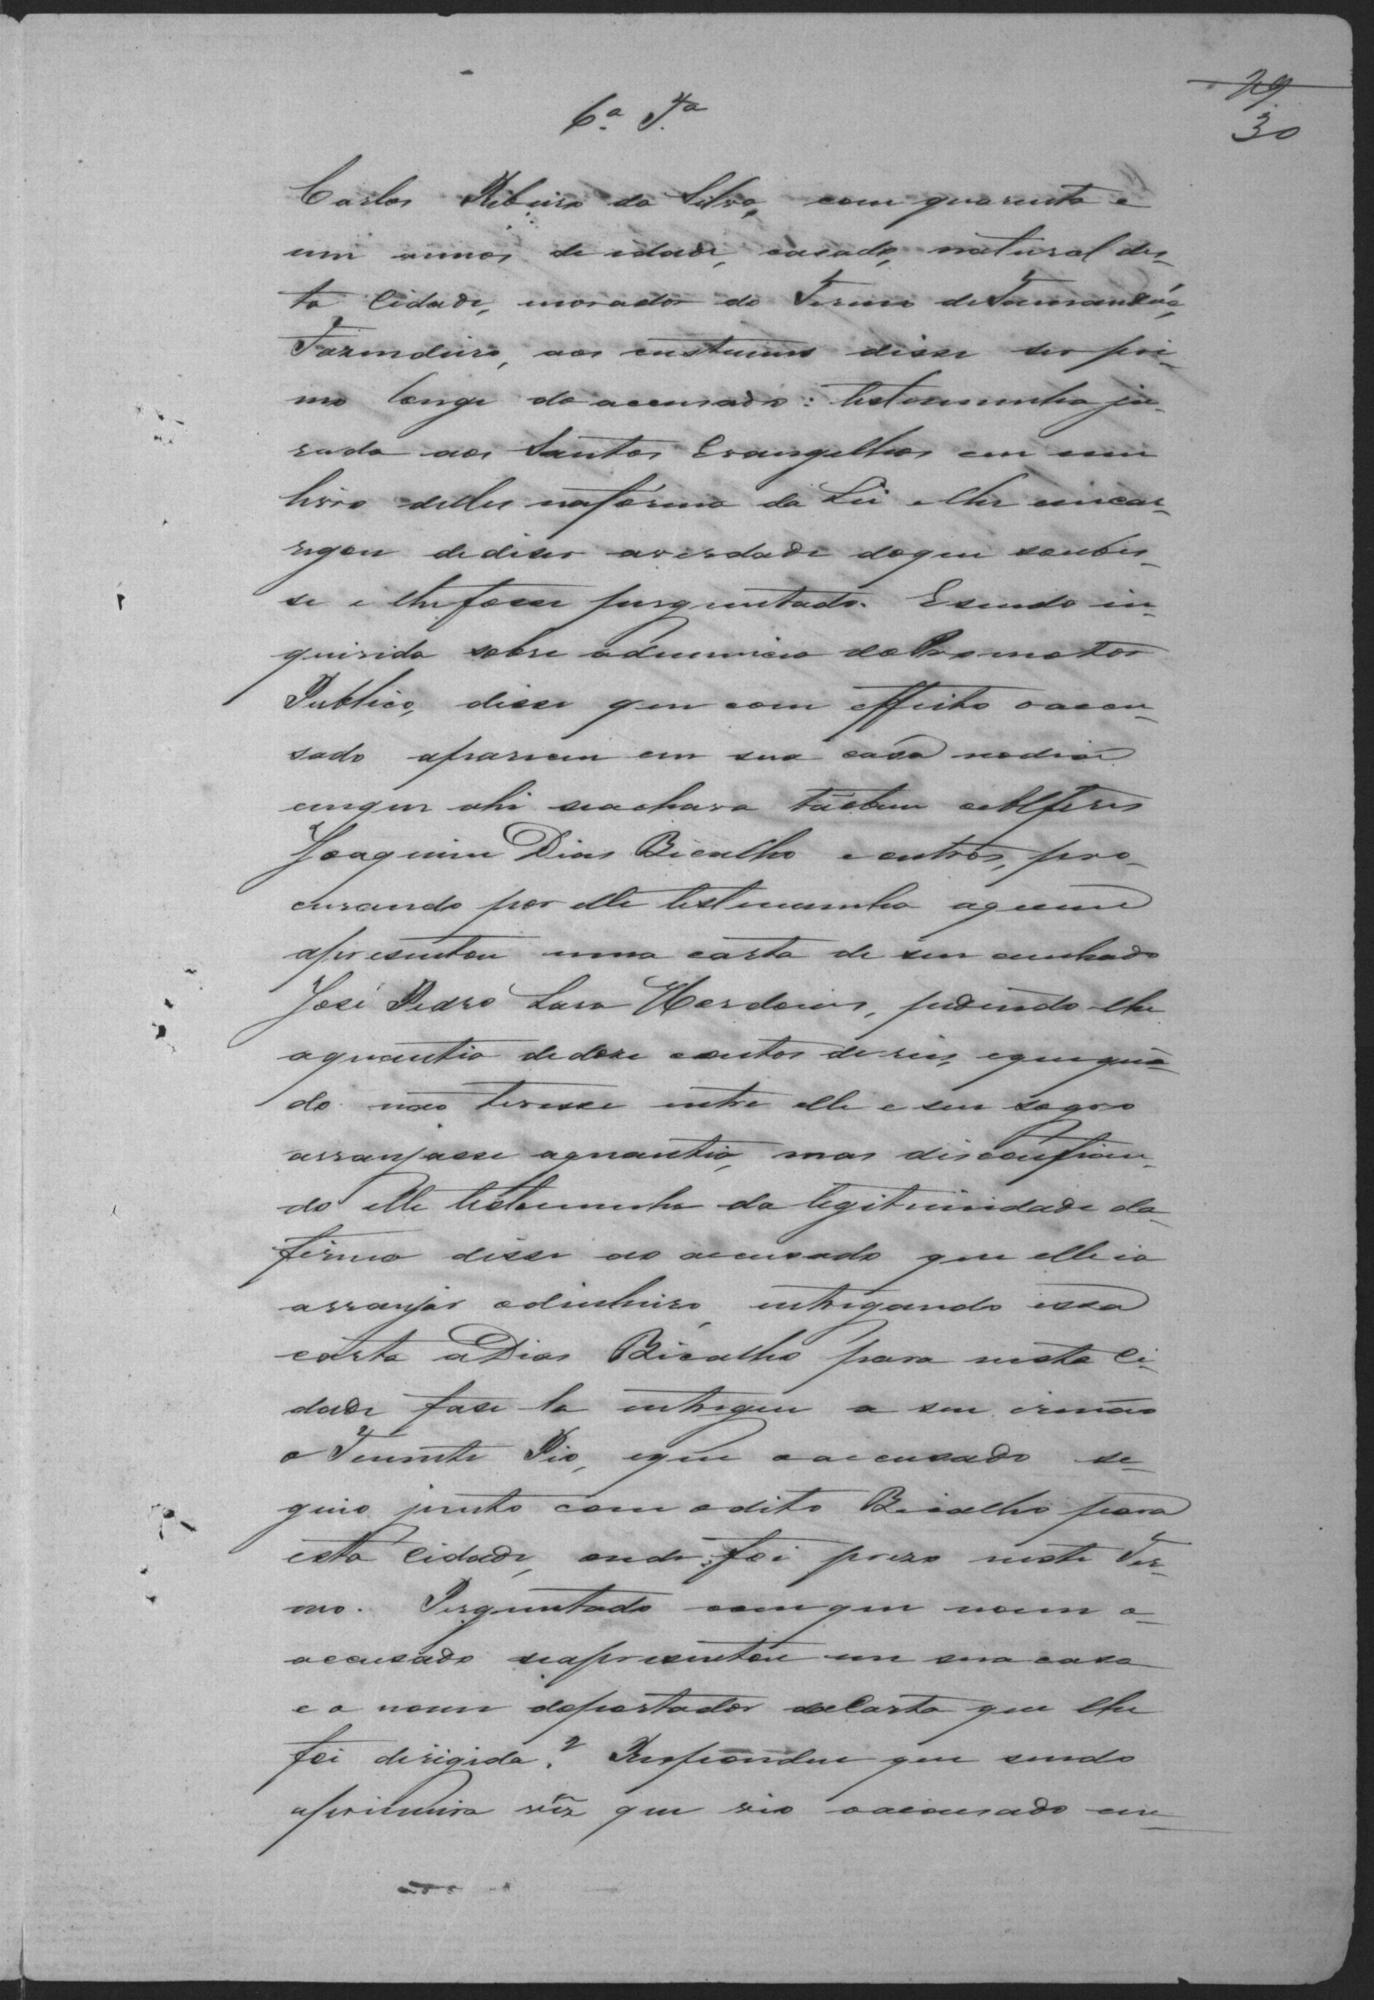 29
30
6.ª T.ª
Carlos Ribeiro da Silva, com quarenta e
um annos de idade, casado, natural des-
ta Cidade, morador do Termo de Tamanduá,
Fazendeiro, aos custumes disse ser pri-
mo longe do accusado: testemunha ju-
rada aos Santos Evangelhos em um
livro delles na forma da Lei e lhe encar-
regou de diser a verdade do que soubes-
se e lhe fosse perguntado. E sendo in-
quirida sobre a denuncia do Promotor
Publico, disse que com effeito o accu-
sado apareceu em sua casa no dia
em que ahi se achava tãobem o Alferes
Joaquim Dias Bicalho e outros, pro-
curando por elle testemunha a quem
apresentou uma carta de seu cunhado
José Pedro Lara, pedindo-lhe
a quantia de doze contos de reis, e que quã-
do não tivesse entre elle e seu sogro
arranjasse a quantia, mas disconfian-
do elle testemunha da legitimidade da
firma disse ao accusado que elle ia
arranjar o dinheiro, entregando essa
carta a Dias Bicalho para nesta Ci-
dade fase la entregue a seu irmão
o Tenente Pio, e que o accusado se-
guio junto com o dito Bicalho para
esta Cidade, onde foi prezo neste Ter-
mo. Perguntado com que nome o
accusado se apresentou em sua casa
e o nome do portador da Carta que lhe
foi dirigida? Respondeu que sendo
a primeira vêz que vio o accusado em-